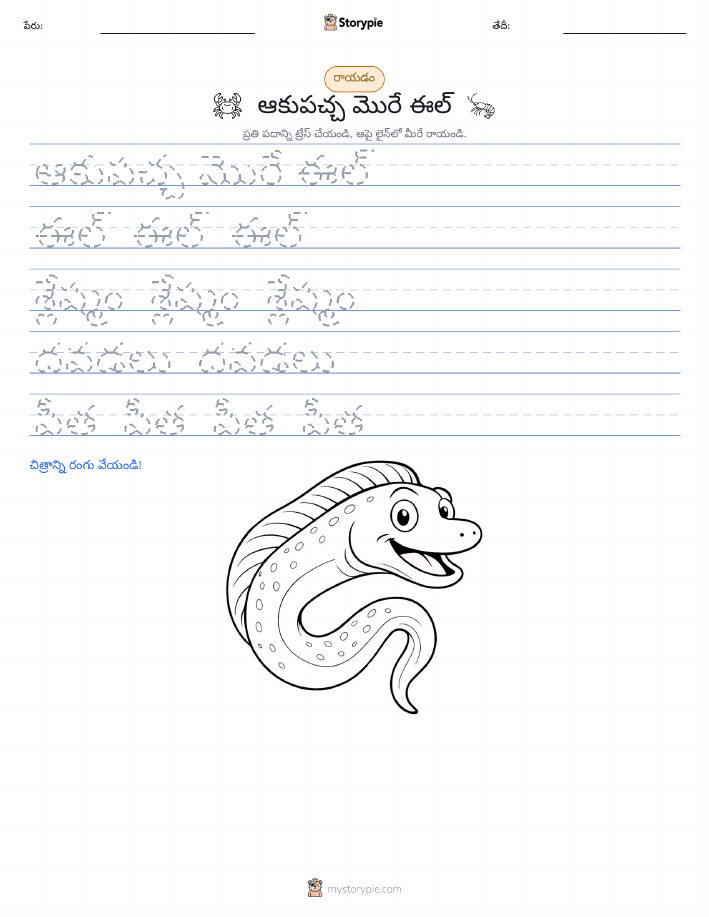 పేరు:
Storypie
తేదీ:
రాయడం
ఆకుపచ్చ మొరే ఈల్
ప్రతి పదాన్ని ట్రేస్ చేయండి, ఆపై లైన్‌లో మీరే రాయండి.
ఆకుపచ్చ మొరే ఈల్
ఈల్ ఈల్ ఈల్
శ్లేష్మం శ్లేష్మం శ్లేష్మం
దవడలు దవడలు
చిత్రాన్ని రంగు వేయండి!
mystorypie.com